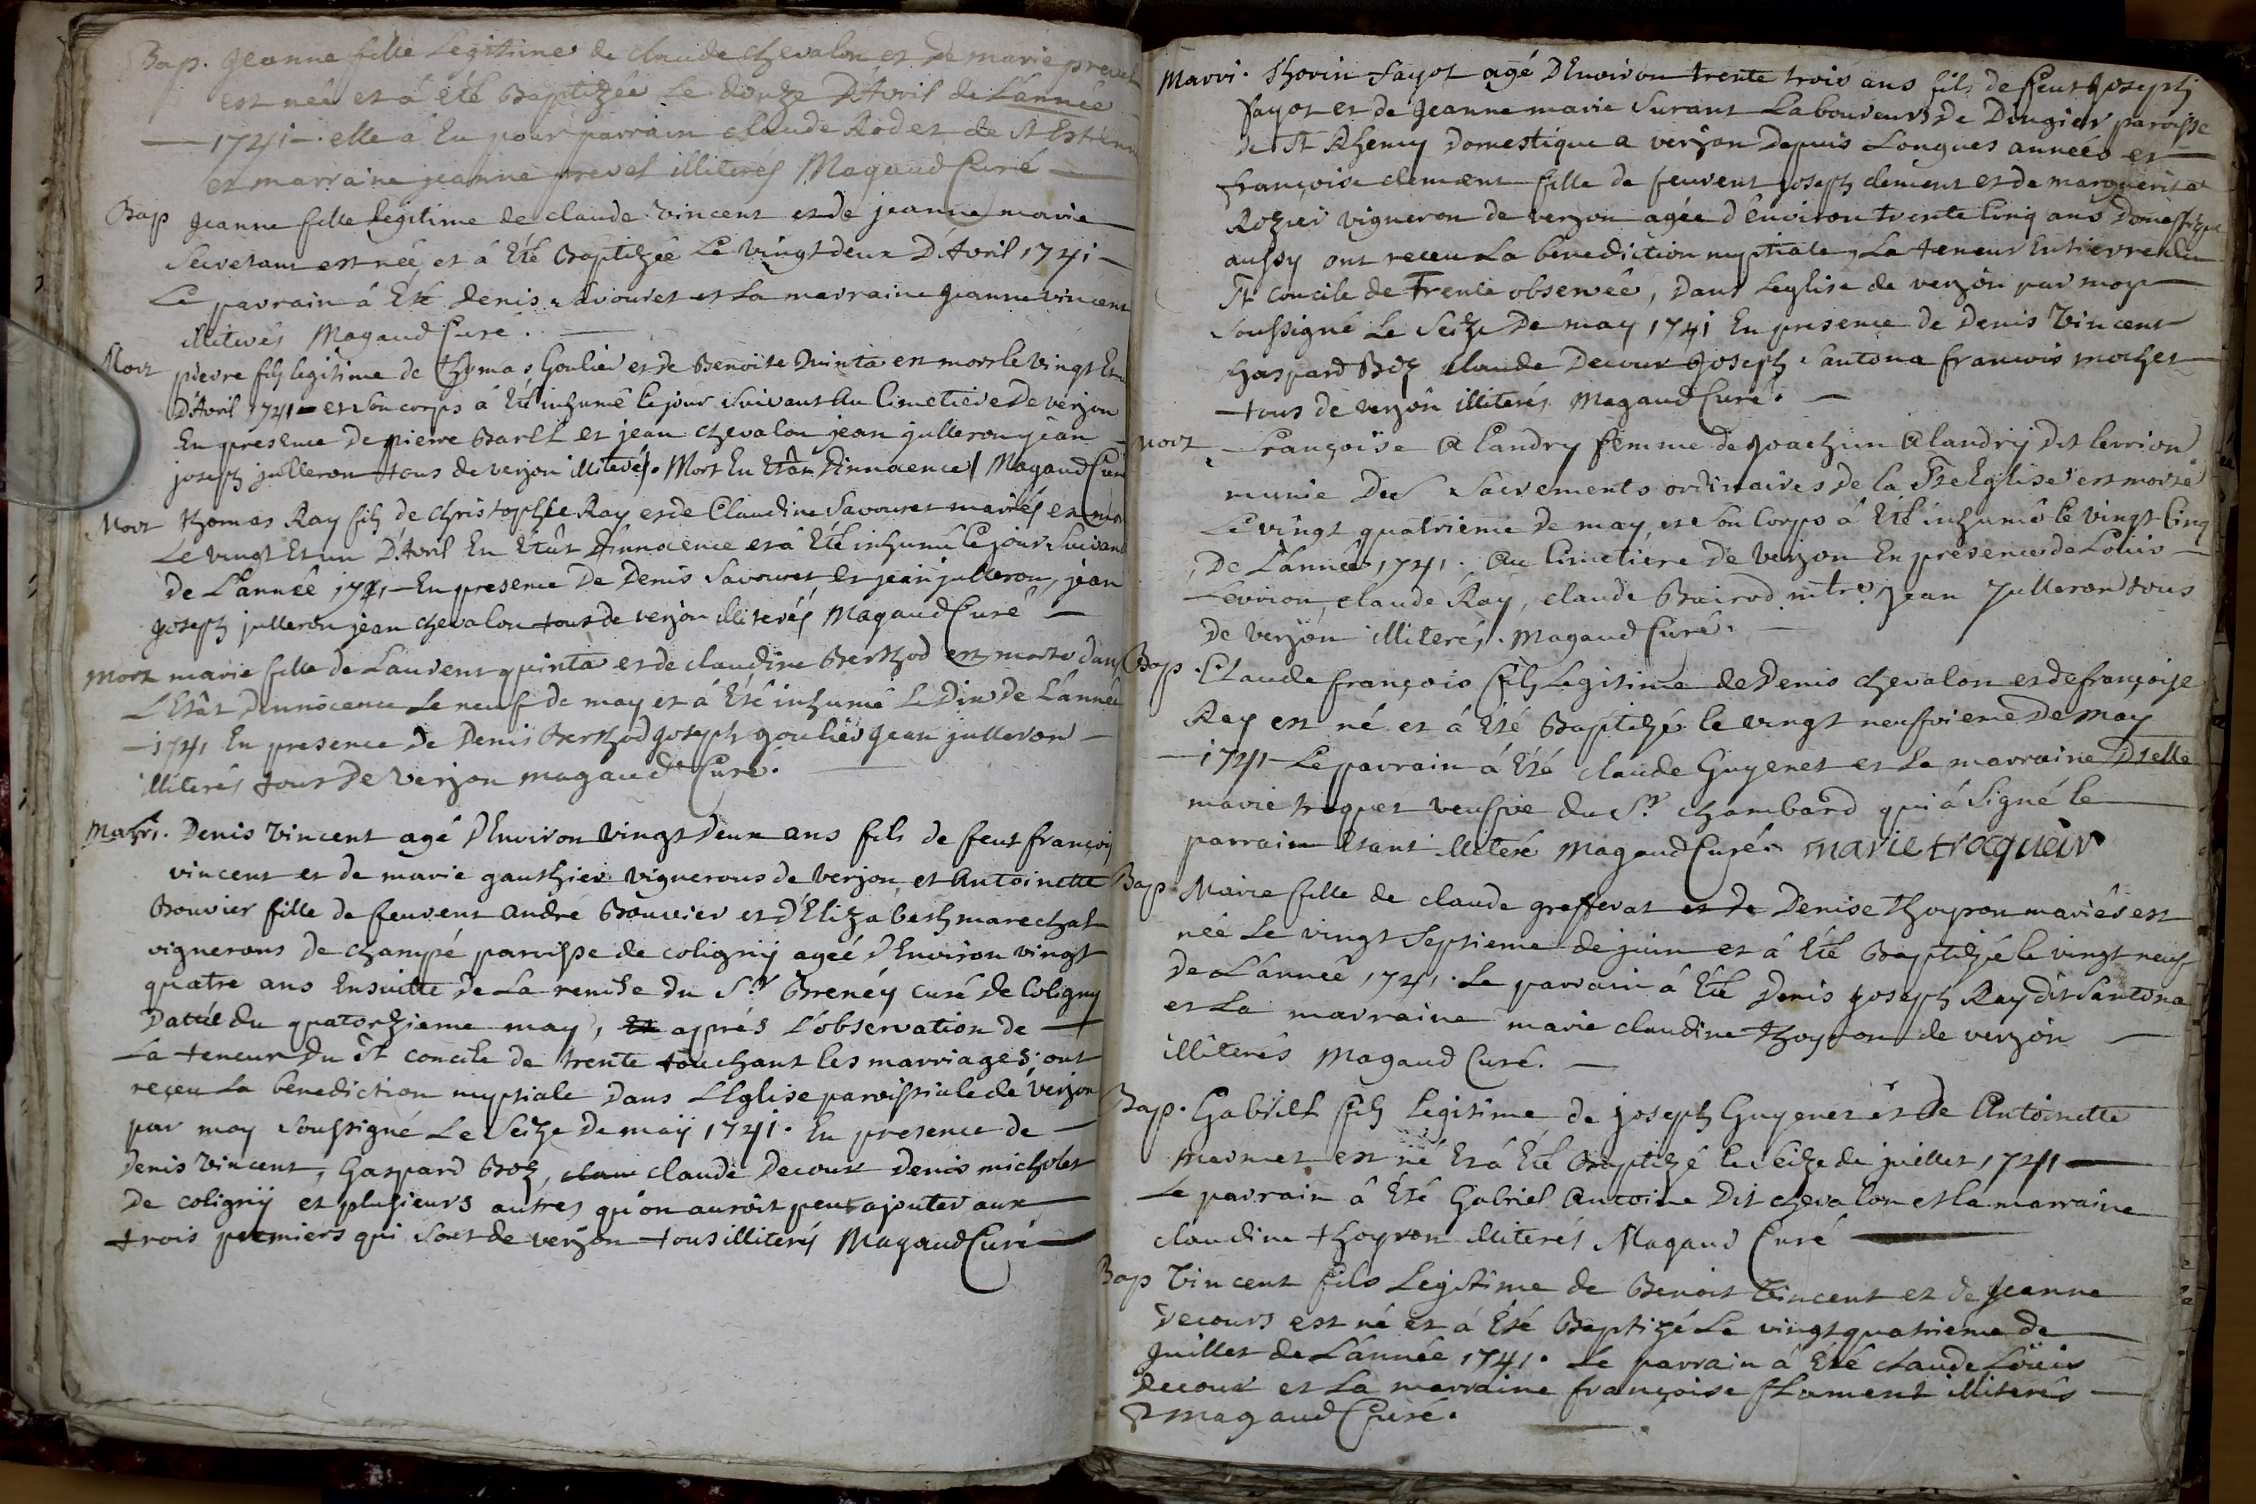 Bap. Jeanne fille Legitime de claude chevalon et de marie prevel
est née et á été Baptizée Le douze D'Avril de L'année
1741 . elle á Eu pour parrain claude Rodet de St Estienne
et marraine jeanne prevel illiterés Magaud Curé
Bap Jeanne fille legitime de claude vincent et de jeanne marie
est née et á Eté Baptizée Le vingt deux D'Avril 1741
Le parrain á Eté denis Savouret et La marraine Jeanne vincent
illiterés Magaud Curé.
Mort pierre fils legitime de thomas Goulier et de Benoite Quinta est mort le vingt Et un
D'Avril 1741 et son corps á Eté inhumé le jour suivant Au Cimetiere De verjon
En presence De pierre Barlet et jean chevalon jean julleron jean
joseph julleron tous de verjon illiterés. Mort En Etât D'innocence / Magaud Curé
Mort thomas Ray fils de christophle Ray et de Claudine Savouret mariés est mort
Le vingt Et un D'Avril En Etât D'innocence et á Eté inhumé Le jour Suivant
de L'année 1741 En presence De Denis Savouret Et jean julleron, jean
Joseph julleron jean chevalon tous de verjon illiterés Magaud Curé
Mort marie fille de Laurent quinta et de claudine Berthod est morte dans
L'Etât D'innocence Le neuf de may et á Eté inhumé Le Dix de L'année
1741 En presence de Denis Berthod Joseph goulier Jean julleron
illiterés tous De Verjon magaud Curé.
Marri. Denis Vincent agé D'Environ vingt deux ans fils de feut françois
vincent et de marie gauthier vignerons de verjon, et Antoinette
Bouvier fille de feuvent andré Bouvier et D'Elizabeth marechal
vignerons de champé paroisse de coligny ageé D'Environ vingt
quatre ans Ensuitte De La remise du Sr Breney curé de Coligny
Dattée du quatorzieme may, Et apprés L'observation de
La teneur Du St concile de trente touchant les marriages: ont
reçeu La benediction nuptiale Dans L'Eglise paroissiale de verjon
par moy soussigné Le Seize De may 1741. En presence de
Denis Vincent, Gaspard Boz, clau claude Decour Denis michelet
De coligny et plusieurs autres qu'on auroit peut ajouter aux
trois permiers qui sont de verjon tous illiterés Magaud Curé
Marri. Thorin Fayot agé D'Environ trente trois ans fils de feut Joseph
fayot et de Jeanne marie Surant Laboureurs de Dingier paroisse
de St Rhemy Domestique a verjon Depuis Longues années et
françoise clement fille de feuvent joseph clement et de marguerite
Rozier vigneron de verjon agée d'environ trente Cinq ans Domestique
aussy ont receu La benediction nuptiale, La teneur Entiere du
St Concile de Trente observée, Dans L'eglise de verjon par moy
Soussigné Le Seize De may 1741 En presence de Denis Vincent
Gaspard Boz Claude Decour Joseph Santona francois mochet
tous de verjon illiterés Magaud Curé.
Mort françoise Alandry femme de Joachim Alandry Dit Levrion
munie Des Sacrements ordinaires De La Ste Eglise est morte
Le vingt quatrieme de may, et son Corps á Eté inhumé le Vingt Cinq
De L'année 1741. Au Cimetiere De verjon En presence de Loüis
Levrion, claude Ray, claude Bairod mtre, Jean Julleron tous
De verjon illiterés. Magaud Curé.
Bap. Claude françois fils Legitime de Denis chevalon et de françoise
Ray est né et á Eté Baptizé le vingt neufvieme De may
1741 Le parrain á Eté claude Guyenet et La marraine Dselle
marie troquet veufve du Sr. chambard qui á Signé le
parrain Etant illiteré Magaud Curé. marie troquair
Bap. Marie fille de claude grefferat et de Denise thoyron mariés est
née Le vingt Septieme de juin et á Eté Baptizé le vingt neuf
De L'année 1741. Le parrain á Eté Denis Joseph Ray dit Santona
et La marraine marie claudine thoyron de verjon
illiterés Magaud Curé.
Bap. Gabriel fils legitime de joseph Guyenet et De Antoinette
mesmet est né Et á Eté Baptizé le Seize de juillet 1741
Le parrain á Eté Gabriel Antoine Dit chevalon et la marraine
claudine thoyron illiterés Magaud Curé
Bap Vincent fils Legitime de Benoit Vincent et de Jeanne
Decours est né et á Eté Baptizé Le vingt quatrieme de
Juillet de L'année 1741. Le parrain á Eté claude Loüis
decour et La marraine françoise flament illiterés
magaud Curé.